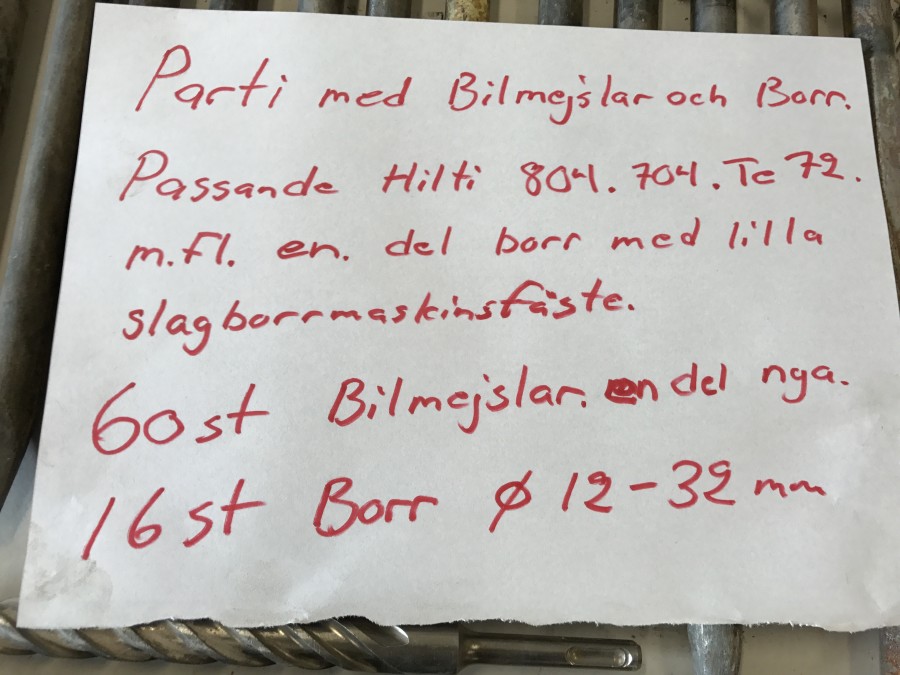 Parti med Bilmejslar och Borr.
Passande Hilti 804. 704. Te 72.
m.fl. en. del borr med lilla
slagborrmaskinsfäste.
60st Bilmejslar. en del nya.
16st Borr ø 12-32 mm